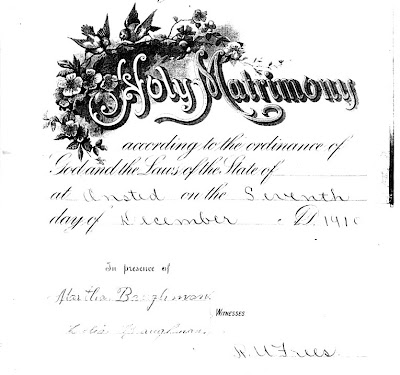 Holy Matrimony
according to the ordinance of
God and the Laws of the State of
at Onsted on the Seventh
day of December A.D. 1910
In presence of
Martha Baughman
WITNESSES
Baughman